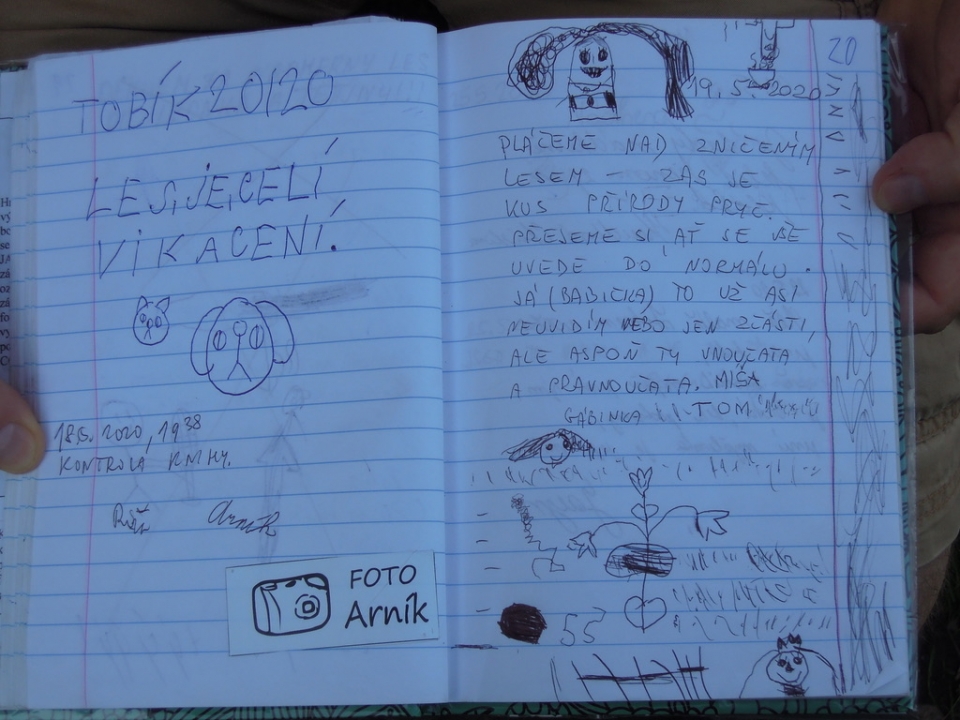 TOBÍK 20/20
LES,JE,CELÍ
VIKACENÍ.
18.5. 2020, 19 38
KONTROLA KNIHY.
Arník
FOTO
Arník
20
19. 5. 2020
PLÁČEME NAD ZNIČENÝM
LESEM - ZAS JE
KUS PŘÍRODY PRYČ.
PŘEJEME SI, AŤ SE VŠE
UVEDE DO NORMÁLU.
JÁ (BABIČKA) TO UŽ ASI
NEUVIDÍM NEBO JEN ZČÁSTI,
ALE ASPOŇ TY VNOUČATA
A PRAVNOUČATA. MÍŠA
GÁBINKA TOM
55